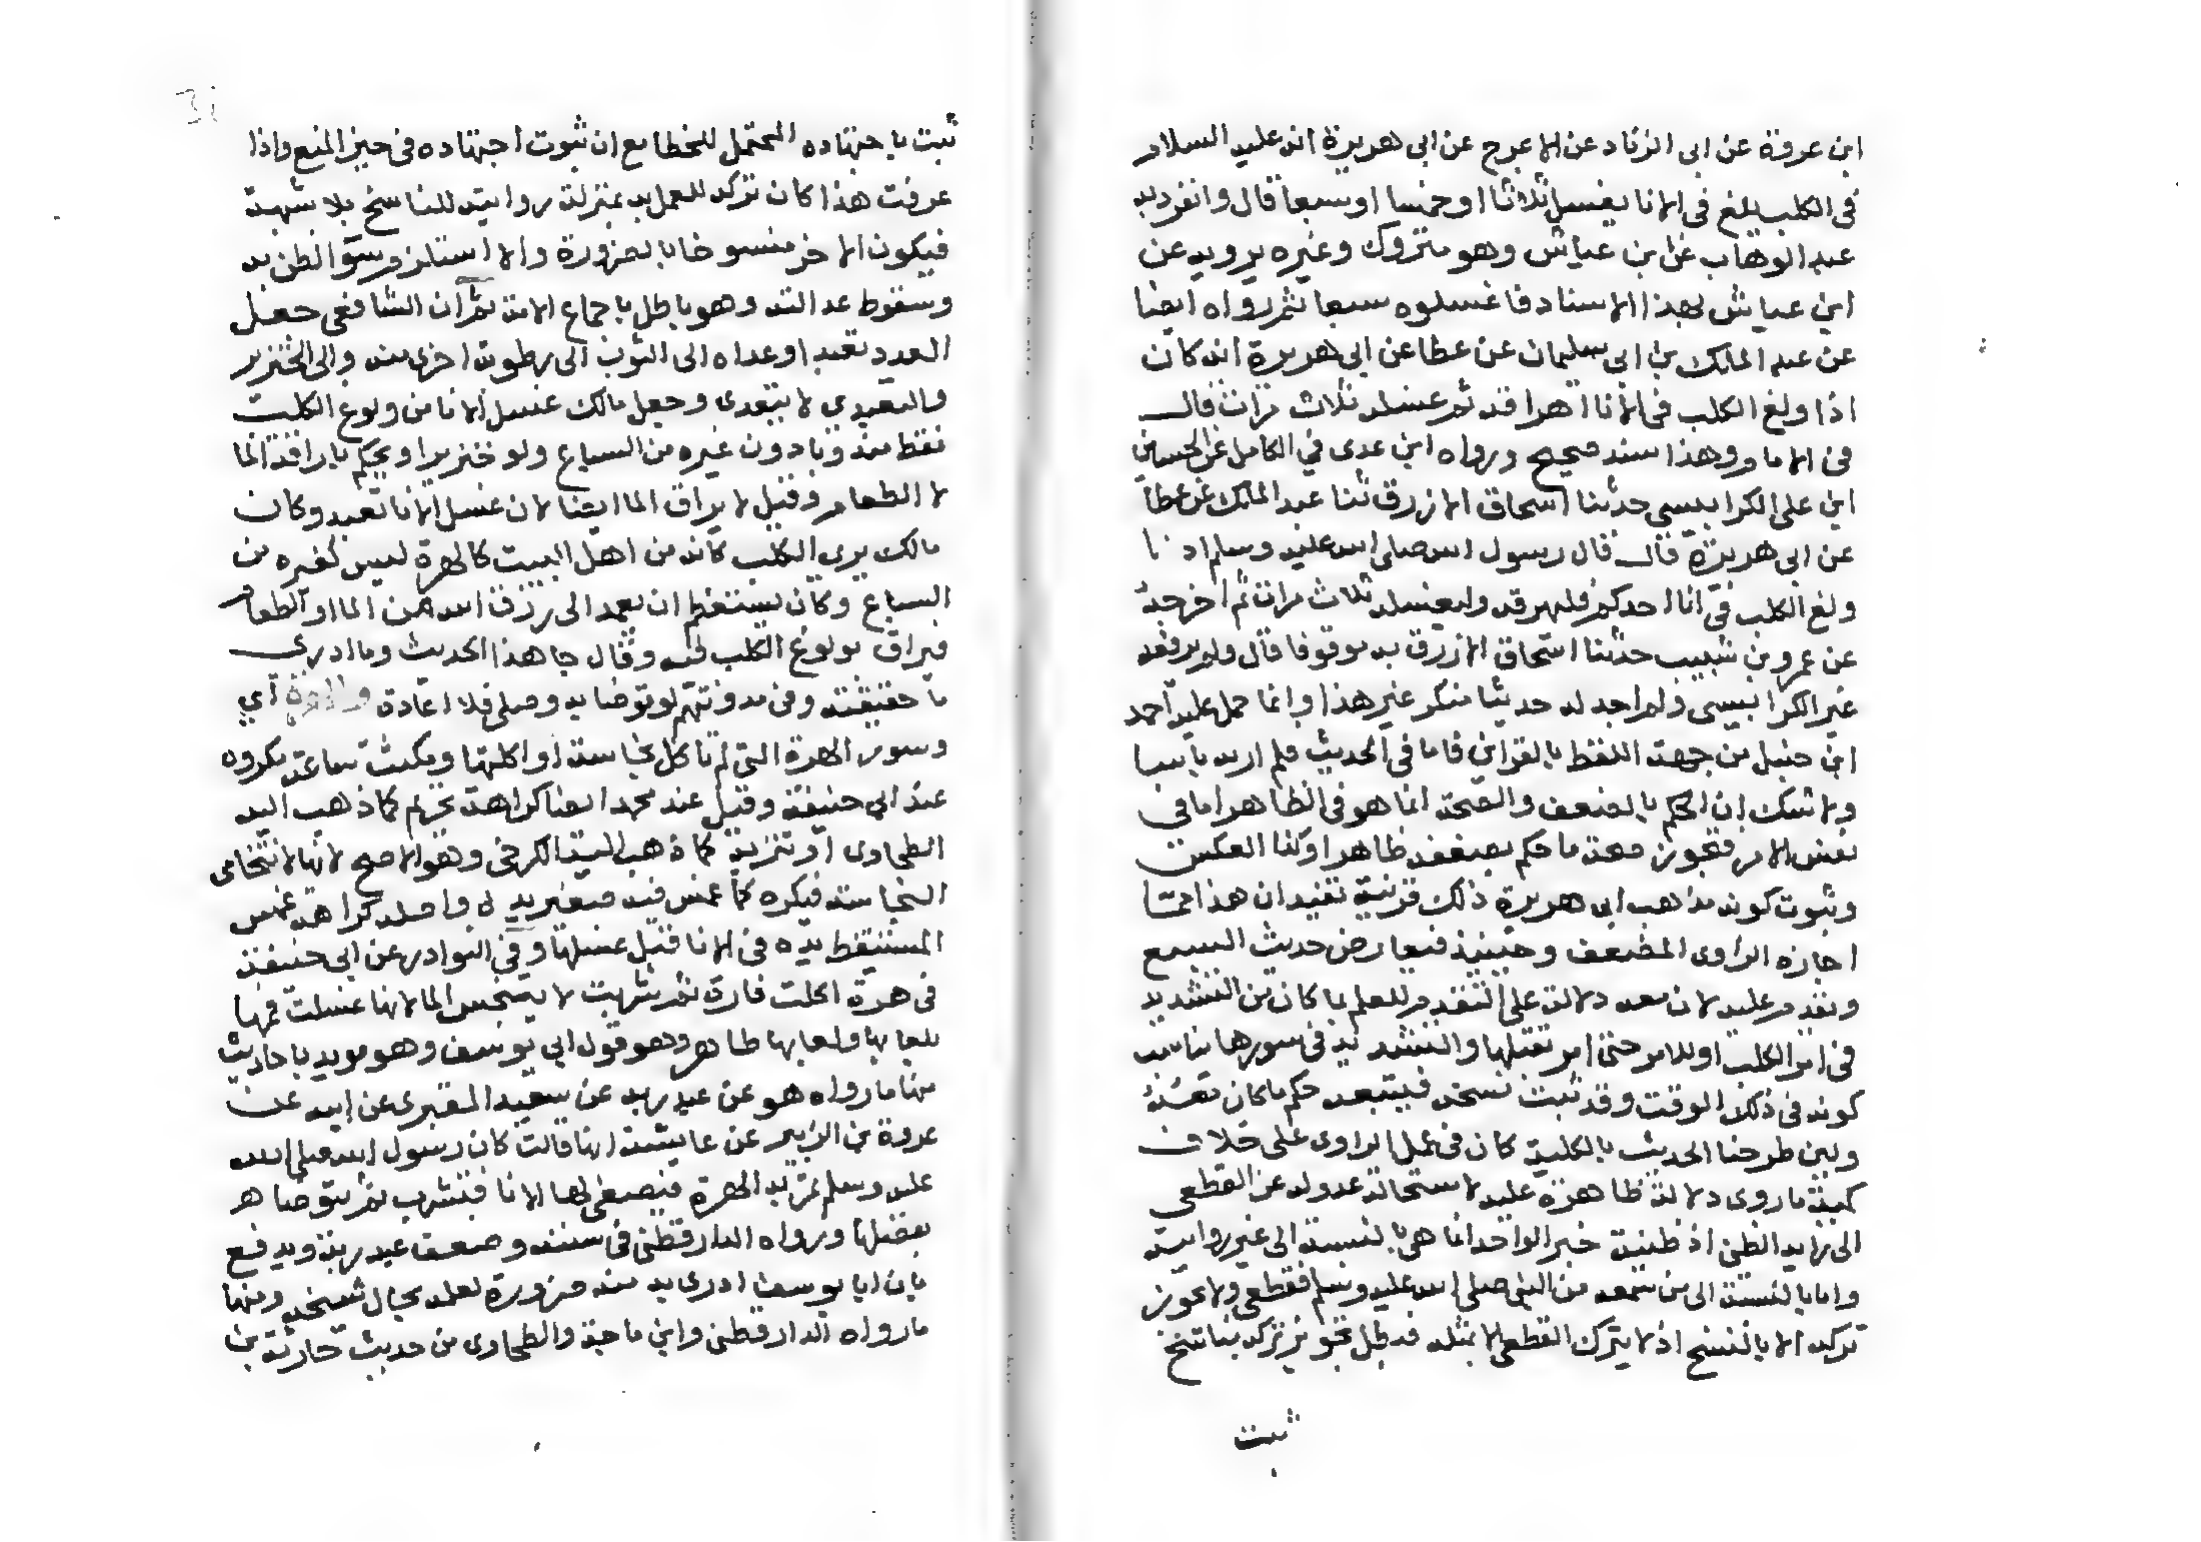 ابن عروة عن ابى الزناد عن الاعرج عن ابى هريرة انه عليه السلام
فى الكلب يلغ فى الانا يغسل ثلاثا او خمسا او سبعا قال وانفرد به
عبد الوهاب عن ابن عياش وهو متروك وغيره يرويه عن
ابن عياش بهذا الاسناد فاغسلوه سبعا ثم رواه ايضا
عن عبد الملك بن ابى سليمان عن عطا عن ابى هريرة انه كان
اذا ولغ الكلب فى الانا اهراقه ثم غسله ثلاث مرات قال
فى الامام وهذا سند صحيح ورواه ابن عدى في الكامل عن الحسين
ابن على الكرابيسى حدثنا اسحاق الازرق ثنا عبد الملك عن عطا
عن ابى هريرة قال قال رسول الله صلى الله عليه وسلم اذا
ولغ الكلب فى انا احدكم فليهرقه وليغسله ثلاث مرات ثم اخرجه
عن عمر بن شبيب حدثنا اسحاق الازرق به موقوفا قال ولم يرفعه
غير الكرابيسى ولم اجد له حديثا منكر غير هذا وانما حمل عليه احمد
ابن حنبل من جهة اللفظ بالقران فاما فى الحديث فلم ار به باسا
ولا شك ان الحكم بالضعف والصحة انما هو فى الظاهر اما فى
نفس الامر فتجوز صحة ما حكم بضعفه ظاهرا وكذا العكس
وثبوت كونه مذاهب ابى هريرة ذلك قرينة تفيد ان هذا مما
اجازه الراوى المضعف وحينئذ فيعارض حديث السبع
ويقدم عليه لان معه دلالة على التقدم للعلم بما كان من التشديد
فى امر الكلب اول الامر حتى امر بقتلها والتشديد فى سورها يناسب
كونه فى ذلك الوقت وقد ثبت نسخه فيتبعه حكم ما كان معه
ولين طرحنا الحديث بالكلية كان فى عمل الراوى على خلاف
كمية ما روى دلالة ظاهرة عليه لاستحالة عدوله عن القطعى
الى رايه الظنى اذ ظنية خبر الواحد انما هى بالنسبة الى غير روايته
واما بالنسبة الى من سمعه من النبى صلى الله عليه وسلم فقطعى ولا يجوز
تركه الا بالنسخ اذ لا يترك القطعى الا بمثله فبطل تجويز تركه بناسخ
ثبت
ثبت باجتهاده المحتمل للخطا مع ان ثبوت اجتهاده فى حيز المنع واذا
عرفت هذا كان تركه للعمل به بمنزلة روايته للناسخ بلا شبهة
فيكون الاخر منسوخا بالضرورة والا استلزم سو الظن به
وسقوط عدالته وهو باطل باجماع الامة ثم ان الشافعى جعل
العدد تعبدا وعداه الى الثوب الى رطوبة اخرى منه والى الخنزير
والتعبدى لا يتعدى وجعل مالك غسل الانا من ولوغ الكلب
فقط ندبا دون غيره من السباع ولو خنزيرا ويحكم باراقة الما
لا الطعام وقيل لا يراق الما ايضا لان غسل الانا تعبد وكان
مالك يرى الكلب كانه من اهل البيت كالهرة ليس كغيره من
السباع وكان يستعظم ان يعمد الى رزق الله من الما او الطعام
فيراق بولوغ الكلب فيه وقال جا هذا الحديث وما ادرى
ما حقيقته وفى مدونتهم لو توضا به وصلى فلا اعادة والهرة اى
وسور الهرة التى لم تاكل نجاسة او اكلتها ومكثت ساعة مكروه
عند ابى حنيفة وقيل عند محمد ايضا كراهة تحريم كما ذهب اليه
الطحاوى او تنزيه كما ذهب اليه الكرخى وهو الاصح لانها لا تتحامى
النجاسة فيكره كما غمس فيه صغير يده واصله كراهة غمس
المستيقظ يده فى الانا قبل غسلها وفى النوادر عن ابى حنيفة
فى هرة اكلت فارة ثم شربت لا يتنجس الما لانها غسلت فمها
بلعابها ولعابها طاهر وهو قول ابى يوسف وهو مويد باحاديث
منها ما رواه هو عن عبد ربه عن سعيد المقبرى عن ابيه عن
عروة بن الزبير عن عايشة انها قالت كان رسول الله صلى الله
عليه وسلم تمر به الهرة فيصغى لها الانا فتشرب ثم يتوضا هر
بفضلها ورواه الدارقطنى فى سننه وضعف عبد ربه ويدفع
بان ابا يوسف ادرى به منه ضرورة لعلمه بحال شيخه ومنها
ما رواه الدارقطنى وابن ماجة والطحاوى من حديث حارثة بن